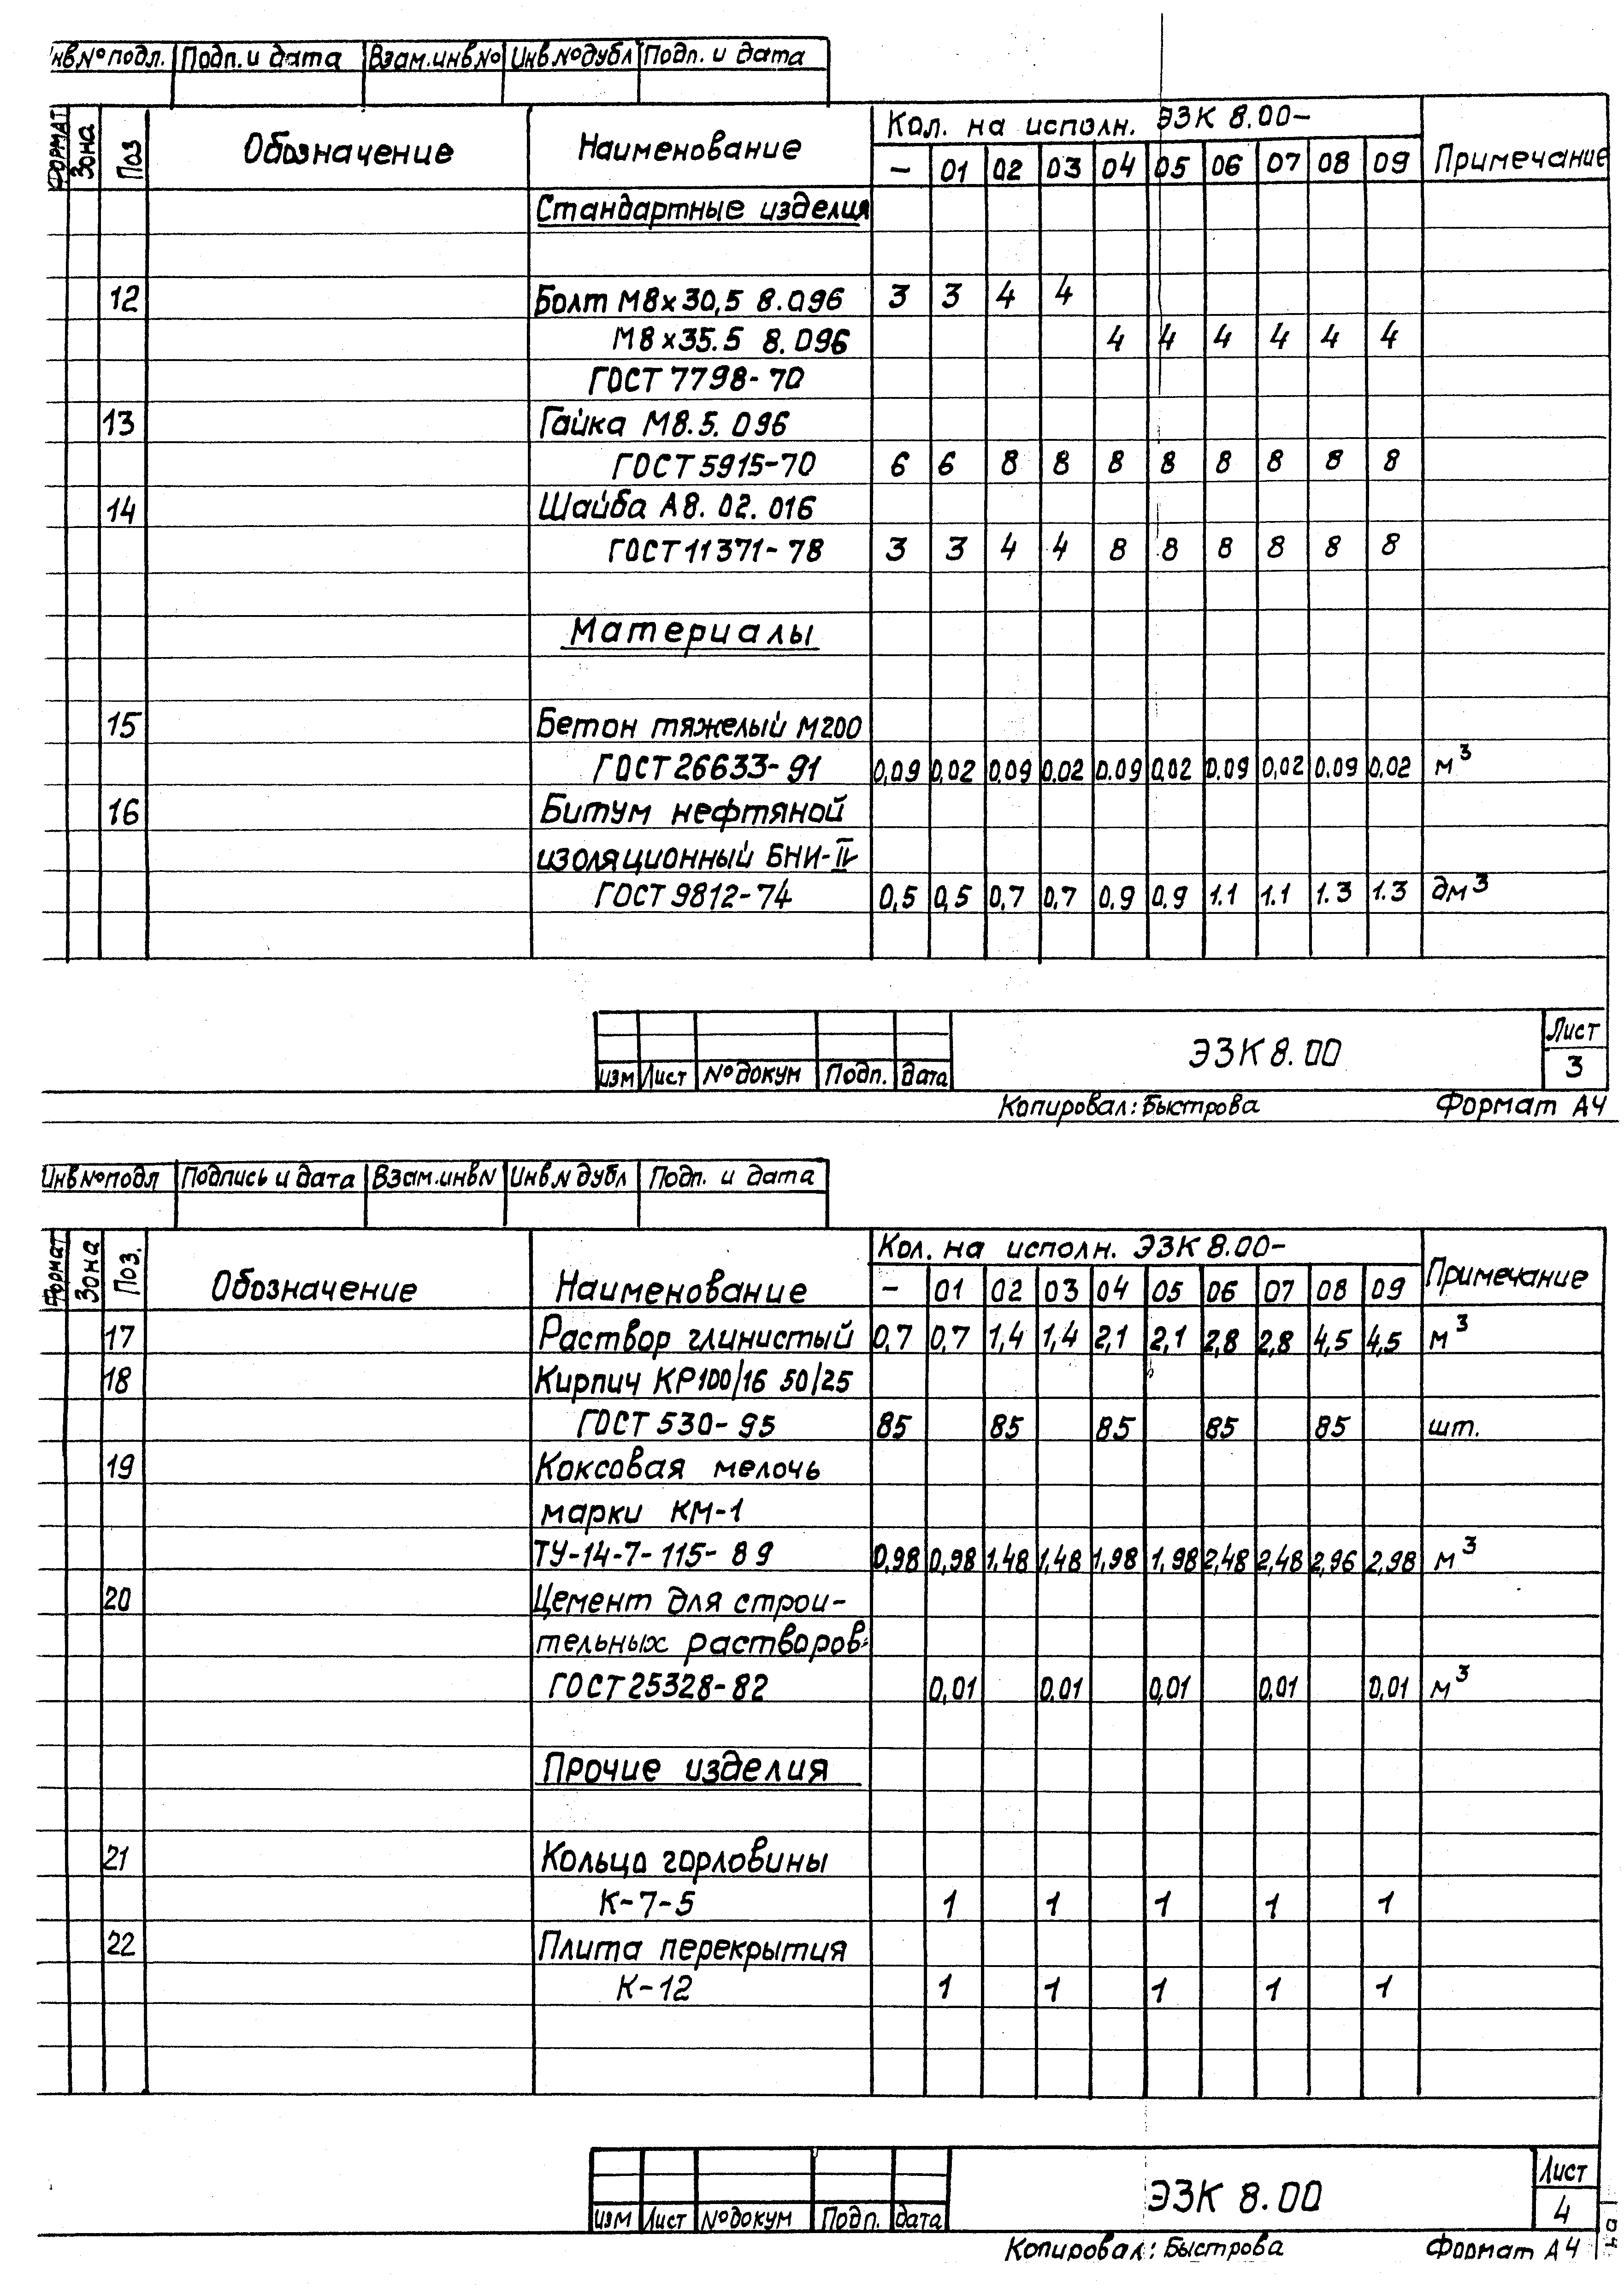 Инв№подл. Подп. и дата Взам.инв№ Инв№дубл Подп. и дата
Формат Зона Поз Обозначение Наименование Кол. на исполн. ЭЗК 8.00– Примечание
– 01 02 03 04 05 06 07 08 09
Стандартные изделия
12 Болт М8х30,5 8.096 3 3 4 4
М8х35.5 8.096 4 4 4 4 4 4
ГОСТ 7798-70
13 Гайка М8.5.096
ГОСТ 5915-70 6 6 8 8 8 8 8 8 8 8
14 Шайба А8.02.016
ГОСТ 11371-78 3 3 4 4 8 8 8 8 8 8
Материалы
15 Бетон тяжелый М200
ГОСТ 26633-91 0,09 0,02 0.09 0.02 0.09 0,02 0.09 0,02 0.09 0.02 м³
16 Битум нефтяной
изоляционный БНИ-IV
ГОСТ 9812-74 0,5 0,5 0,7 0,7 0,9 0.9 1.1 1.1 1.3 1.3 дм³
ЭЗК 8.00 Лист
изм Лист №докум Подп. дата 3
Копировал: Быстрова Формат А4
Инв№подл Подпись и дата Взам.инвN Инв.N дубл Подп. и дата
Формат Зона Поз. Обозначение Наименование Кол. на исполн. ЭЗК 8.00– Примечание
– 01 02 03 04 05 06 07 08 09
17 Раствор глинистый 0,7 0,7 1,4 1,4 2,1 2,1 2,8 2,8 4,5 4,5 м³
18 Кирпич КР100/16 50/25
ГОСТ 530-95 85 85 85 85 85 шт.
19 Коксовая мелочь
марки КМ-1
ТУ-14-7-115-89 0,98 0,98 1,48 1,48 1,98 1,98 2,48 2,48 2,96 2,98 м³
20 Цемент для строи-
тельных растворов
ГОСТ 25328-82 0,01 0,01 0,01 0,01 0,01 м³
Прочие изделия
21 Кольцо горловины
К-7-5 1 1 1 1 1
22 Плита перекрытия
К-12 1 1 1 1 1
ЭЗК 8.00 Лист
изм Лист №докум Подп. дата 4
Копировал: Быстрова Формат А4